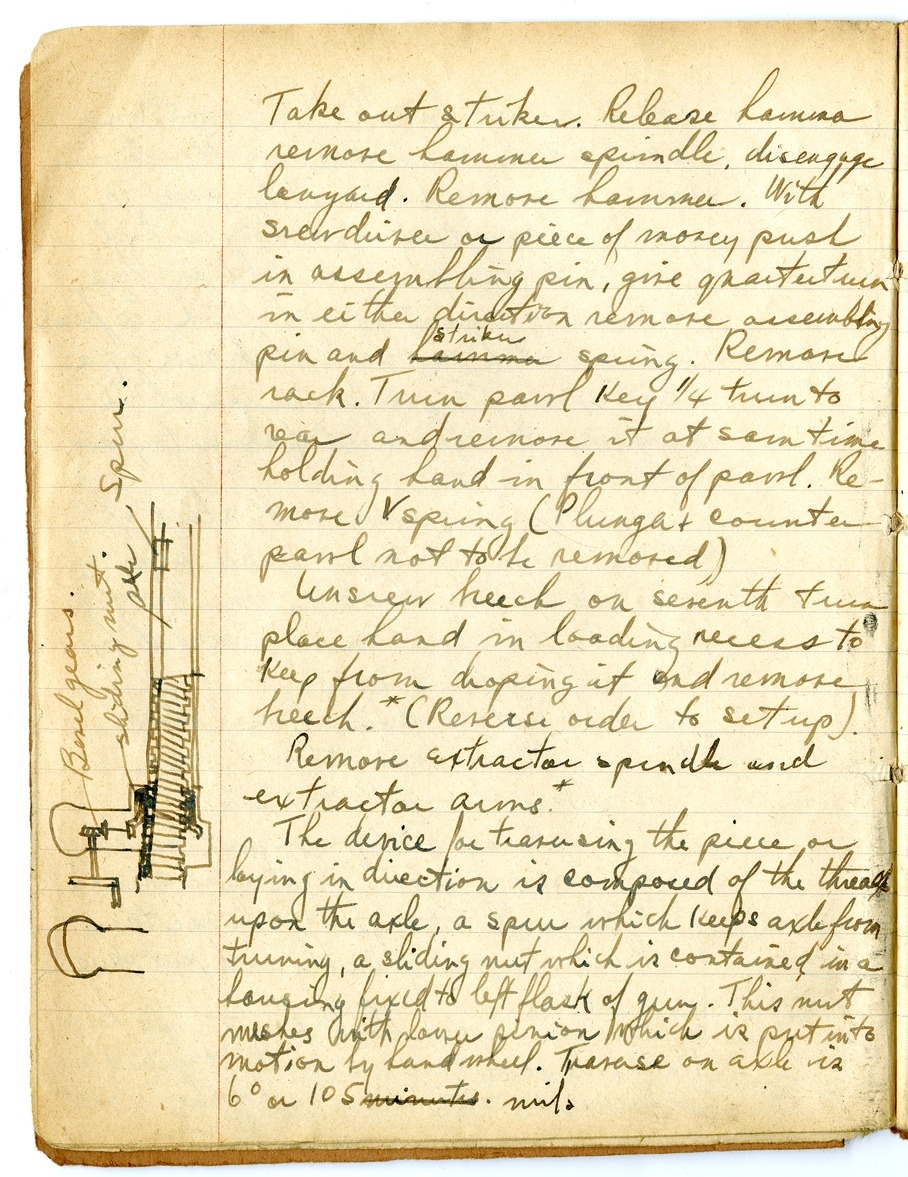 Take out striker. Release hamma
remove hammer spindle, disengage
lanyard. Remove hammer. With
srewdriver or piece of money push
in assembling pin, give quarter turn
in either direction remove assembling
pin and hamma striker spring. Remove
rack. Turn pawl key 1/4 turn to
rear and remove it at sam time
holding hand in front of pawl. Re-
move V spring (Plunga + counter
pawl not to be removed)
Unsrew breech on seventh turn
place hand in loading recess to
keep from droping it and remove
breech.* (Reverse order to set up).
Remove extractor spindle and
extractor arms.*
The device for traversing the piece or
laying in direction is composed of the threads
upon the axle, a spur which keeps axle from
turning, a sliding nut which is contained in a
housing fixed to left flask of gun. This nut
meshes with lower pinion which is put into
motion by hand wheel. Traverse on axle is
6° or 105 minutes. mils
Bevel gears.
sliding nut.
axle
Spur.